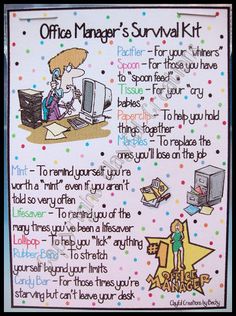 Office Manager's Survival Kit
Pacifier - For your "whiners"
Spoon - For those you have
to "spoon feed"
Tissue - For your "cry
babies"
Paperclip - To help you hold
things together
Marbles - To replace the
ones you'll lose on the job
Mint - To remind yourself you're
worth a "mint" even if you aren't
told so very often
Lifesaver - To remind you of the
many times you've been a lifesaver
Lollipop - To help you "lick" anything
Rubber Band - To stretch
yourself beyond your limits
Candy Bar - For those times you're
starving but can't leave your desk
#1
OFFICE
MANAGER
Creations by Becky